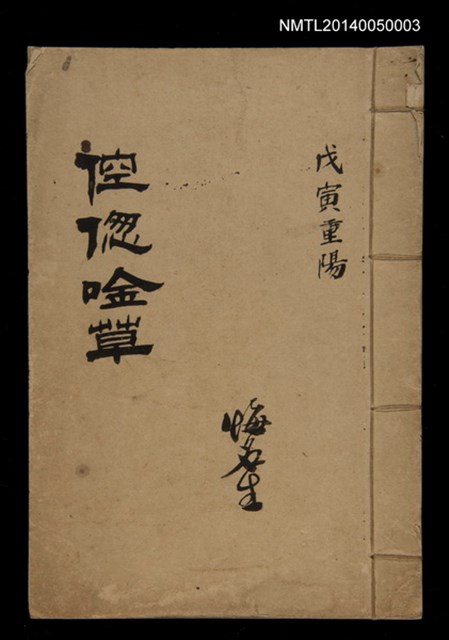 NMTL20140050003
戊寅重陽
悔名生
倥偬唫草